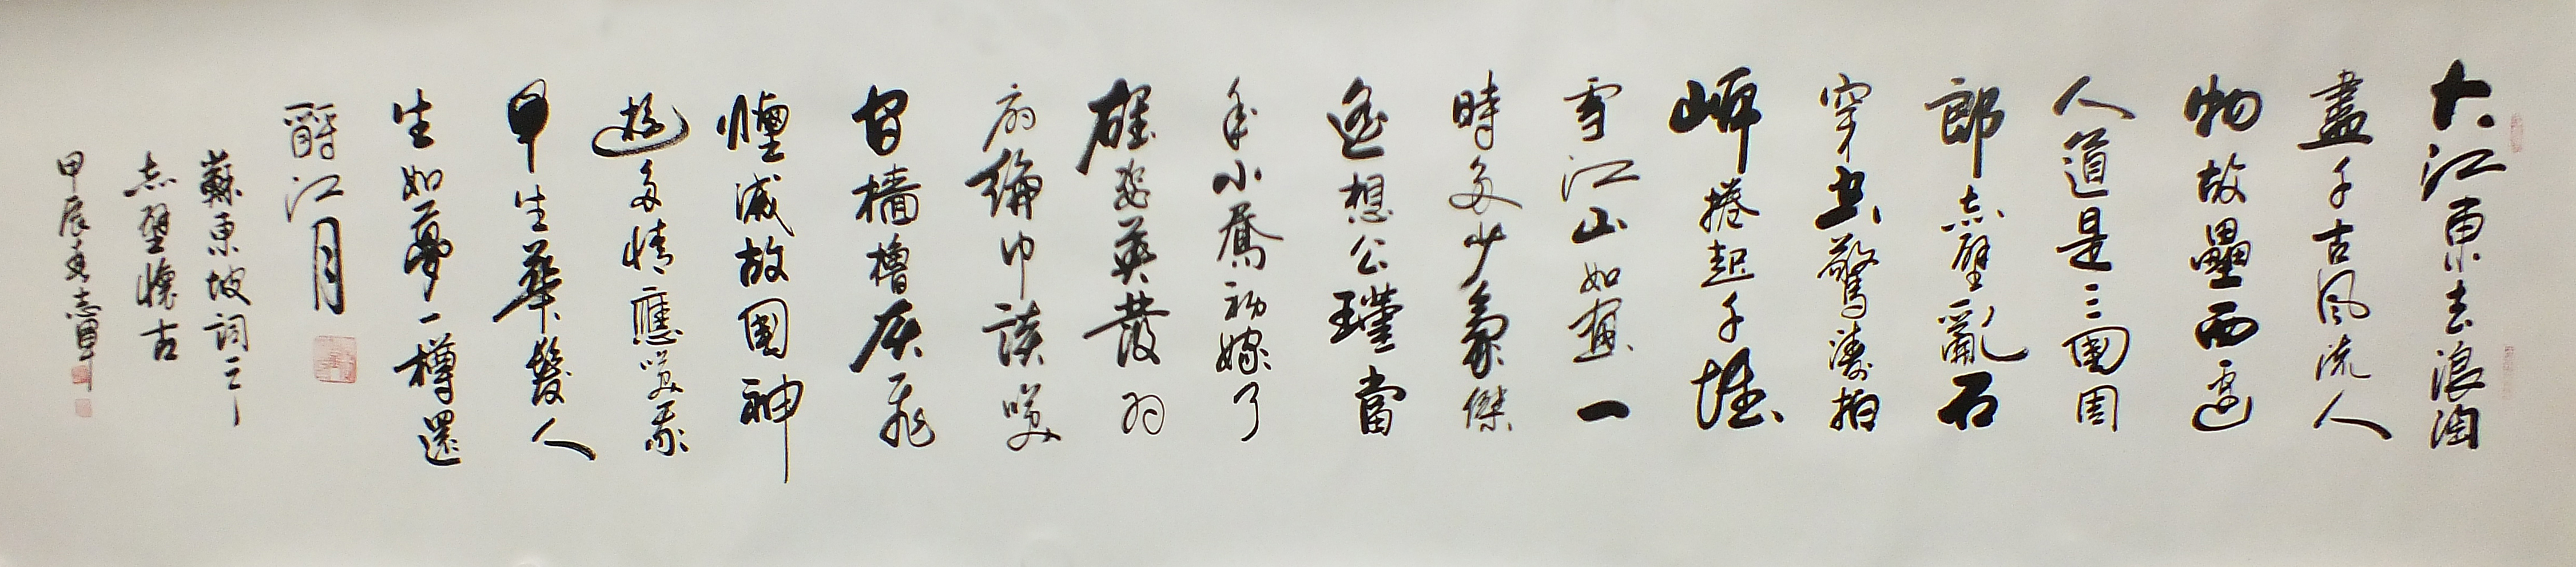 大江東去浪淘
盡千古風流人
物故壘西邊
人道是三國周
郎赤壁亂石
穿空驚濤拍
岸捲起千堆
雪江山如畫一
時多少豪傑
遙想公瑾當
年小喬初嫁了
雄姿英發羽
扇綸巾談笑
間檣櫓灰飛
煙滅故國神
遊多情應笑我
早生華髮人
生如夢一樽還
酹江月
蘇東坡詞
赤壁懷古
甲辰冬志軍